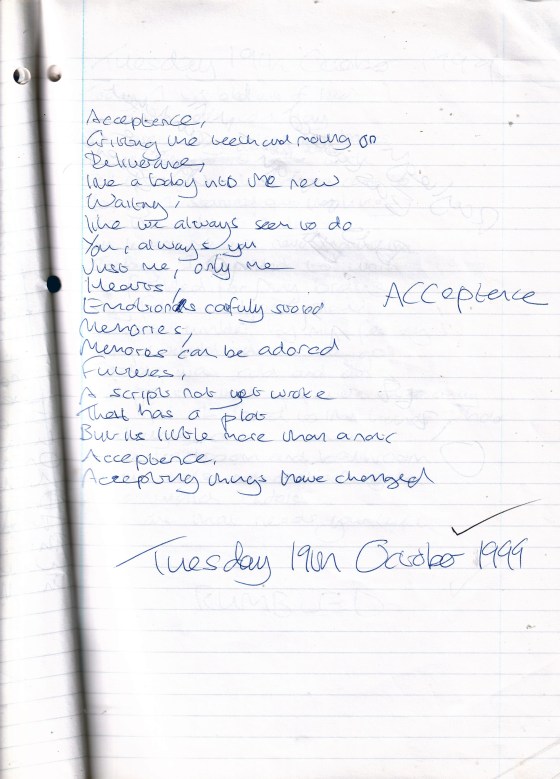 Acceptence,
Griting the teeth and moving on
Deliverance,
like a baby into the new
Waiting,
like we always seem to do
You, always you
Just me, only me
Hearts,
Emotions carfuly stored
Memories,
Memores can be adored
Futures,
A script not yet wrote
That has a plot
But its little more than a note
Acceptence,
Accepting things have changed
ACCeptence
Tuesday 19th October 1999